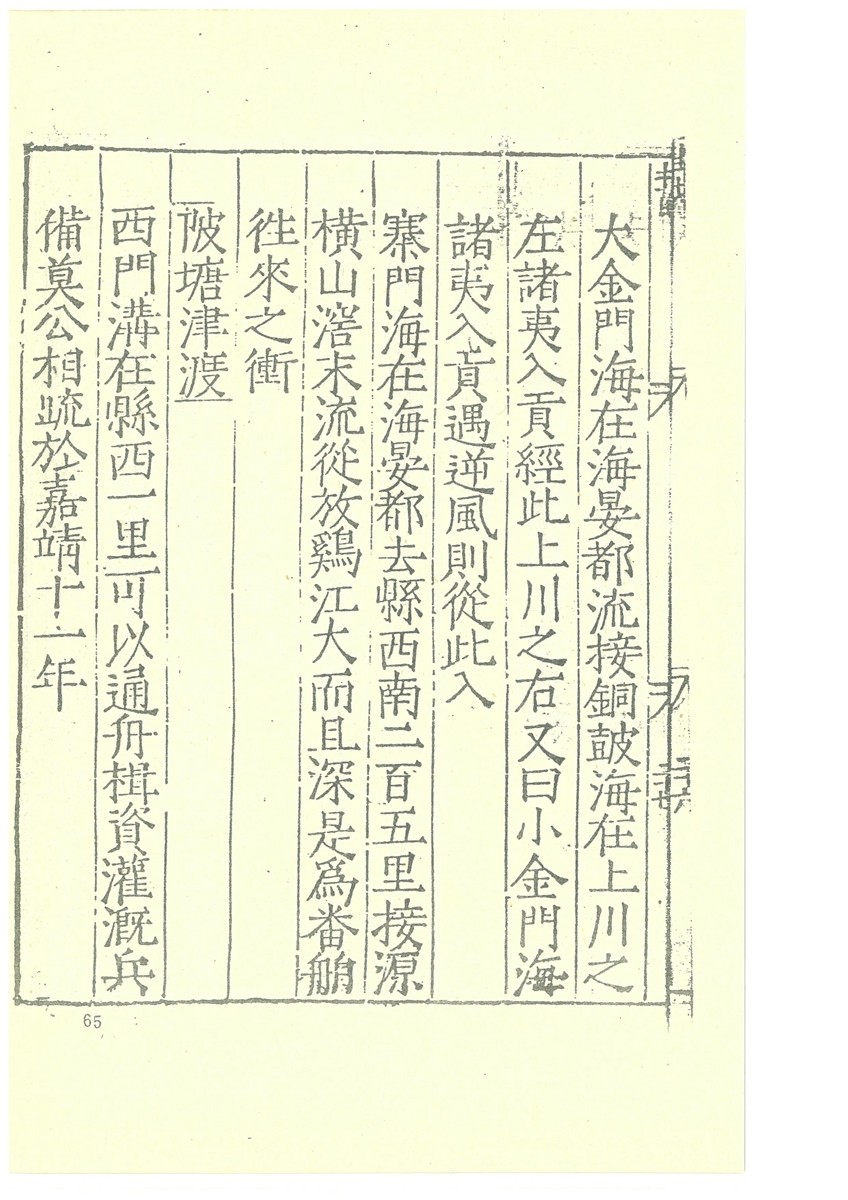 大金門海在海晏都流接銅鼓海在上川之
左諸夷入貢經此上川之右又曰小金門海
諸夷入貢遇逆風則從此入
寨門海在海晏都去縣西南二百五里接源
橫山滘末流從放鷄江大而且深是爲畨舶
徃來之衝
陂塘津渡
西門溝在縣西一里可以通舟楫資灌溉兵
備莫公相疏於嘉靖十一年
65